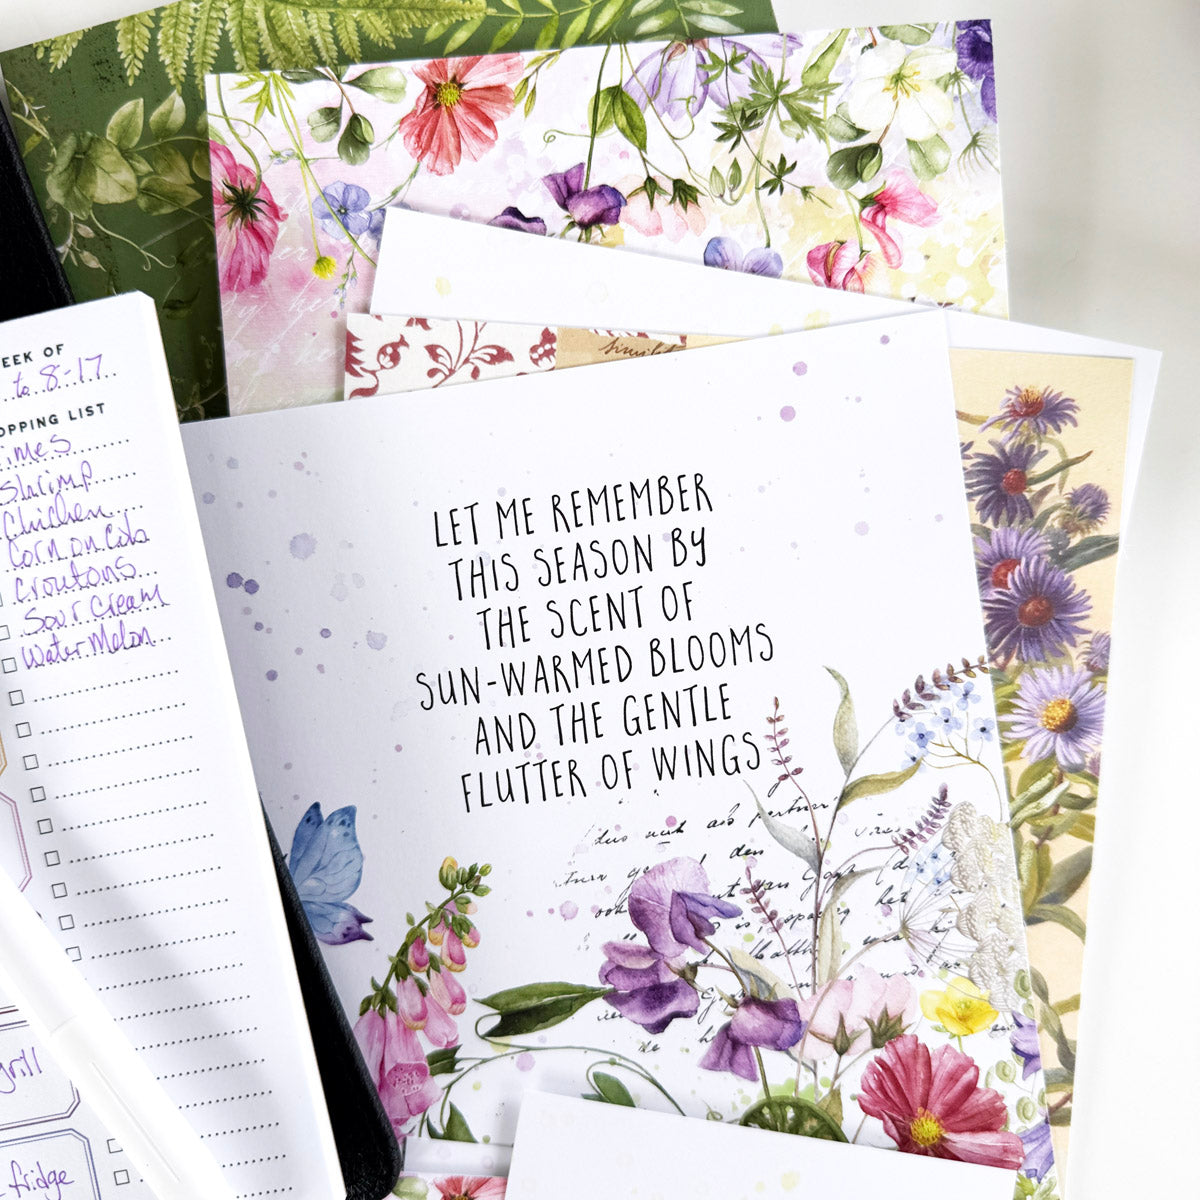 EEK OF
to 8-17
OPPING LIST
imes
Shrimp
Chicken
Corn on Cob
Croutons
Sour Cream
Water Melon
grill
fridge
LET ME REMEMBER
THIS SEASON BY
THE SCENT OF
SUN-WARMED BLOOMS
AND THE GENTLE
FLUTTER OF WINGS